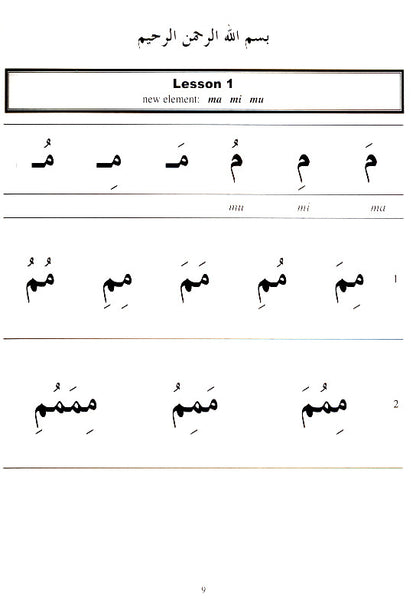 بسم الله الرحمن الرحيم
Lesson 1
new element: ma mi mu
مَ مِ مُ مَـ مِـ مُـ
mu mi ma
1 مِمَ مُمِ مَمَ مِمِ مُمُ
2 مِمُمَ مَمِمُ مِمَمُمِ
9